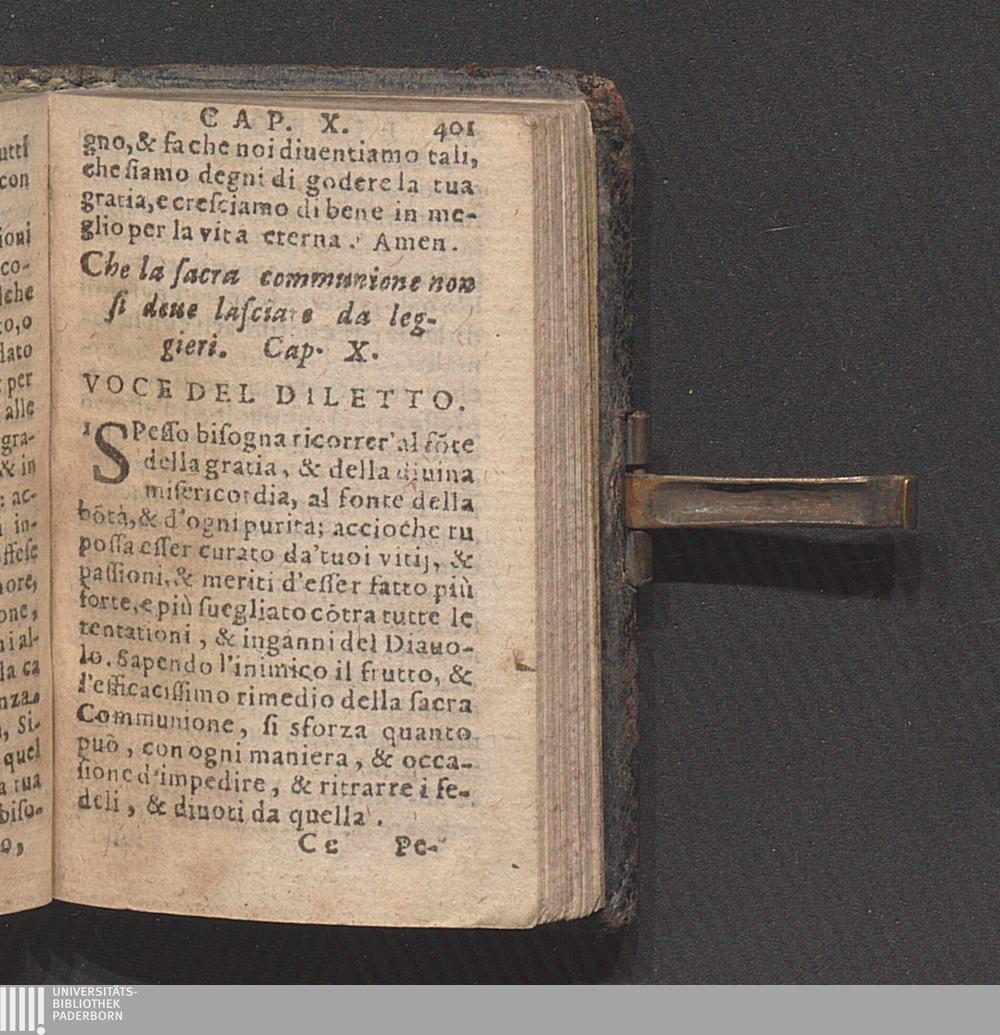 utti
con
ioni
co-
lche
to,o
lato
per
alle
gra-
& in
: ac-
i in-
ffese
nore,
one,
ni al-
la ca
nza.
, Si-
quel
a tua
biso-
o,
CAP. X. 401
gno,& fa che noi diuentiamo tali,
che ſiamo degni di godere la tua
gratia,e creſciamo di bene in me-
glio per la vita eterna. Amen.
Che la ſacra communione non
ſi deue laſciare da leg-
gieri. Cap. X.
VOCE DEL DILETTO.
1 SPeſſo biſogna ricorrer'al fõte
della gratia, & della diuina
miſericordia, al fonte della
bõtà,& d'ogni purità; accioche tu
poſſa eſſer curato da'tuoi vitij, &
paſſioni,& meriti d'eſſer fatto più
forte,e più ſuegliato cõtra tutte le
tentationi, & inganni del Diauo-
lo. Sapendo l'inimico il frutto, &
l'efficaciſſimo rimedio della ſacra
Communione, ſi sforza quanto
può, con ogni maniera, & occa-
ſione d'impedire, & ritrarre i fe-
deli, & diuoti da quella.
Cc Pe-
UNIVERSITÄTS-
BIBLIOTHEK
PADERBORN